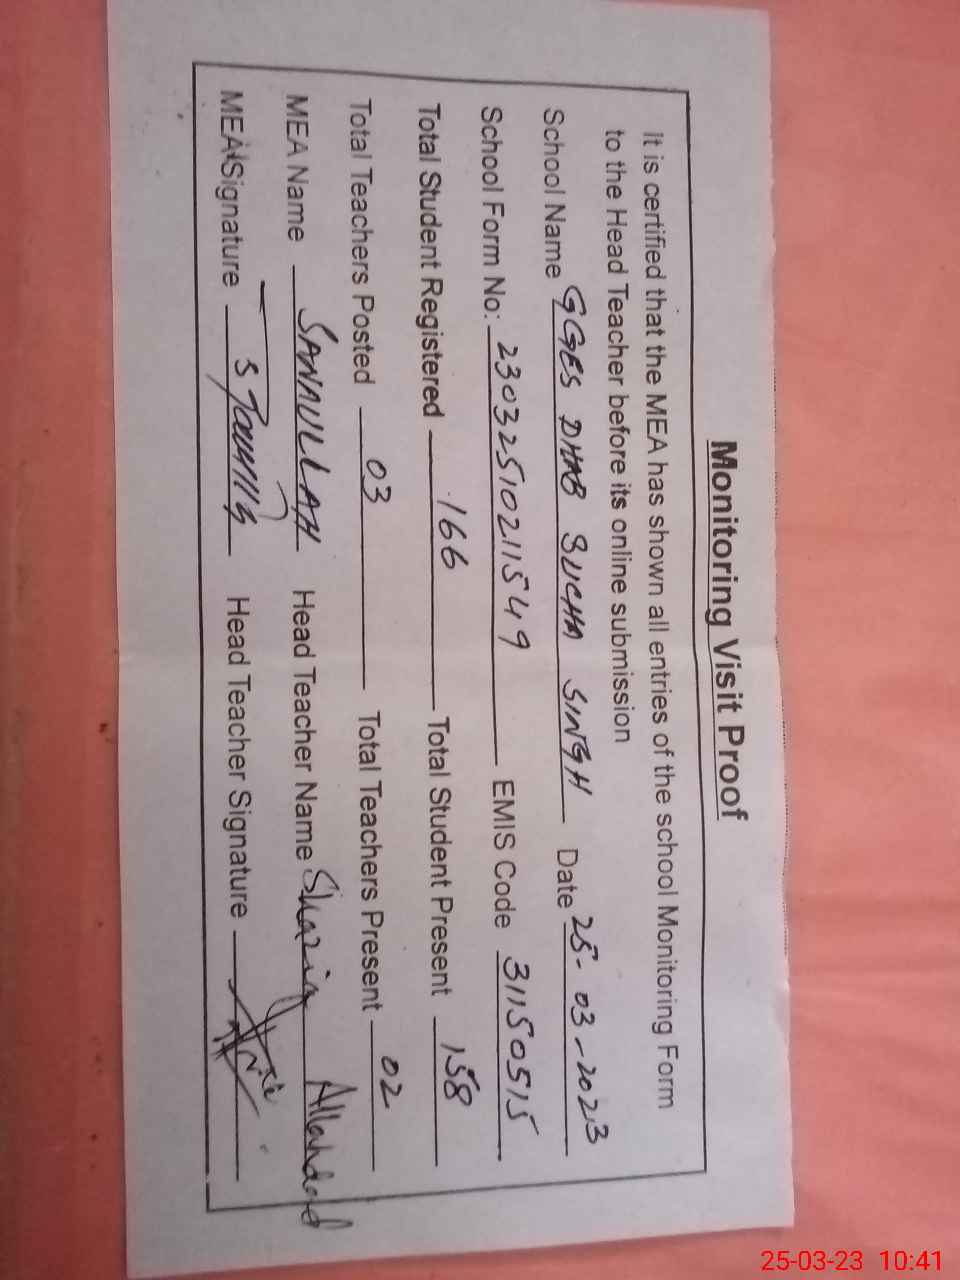 Monitoring Visit Proof
It is certified that the MEA has shown all entries of the school Monitoring Form
to the Head Teacher before its online submission
School Name GGES DHAB SUCHA SINGH Date 25-03-2023
School Form No: 23032510211549 EMIS Code 31150515
Total Student Registered 166 Total Student Present 158
Total Teachers Posted 03 Total Teachers Present 02
MEA Name SANAULLAH Head Teacher Name Shazia Allahdad
MEA Signature Head Teacher Signature
25-03-23 10:41